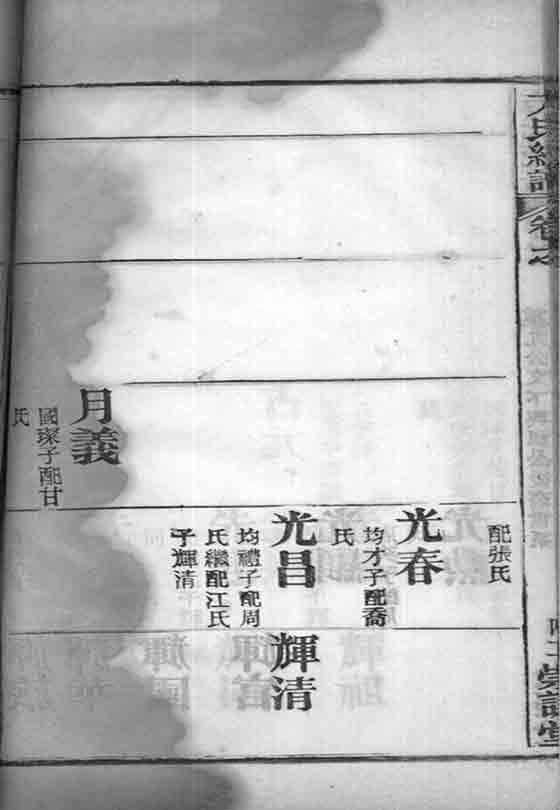 配張氏
光春
均才子配喬
氏
光昌
均禮子配周
氏繼配江氏
子輝清
輝清
月義
國琛子配甘
氏